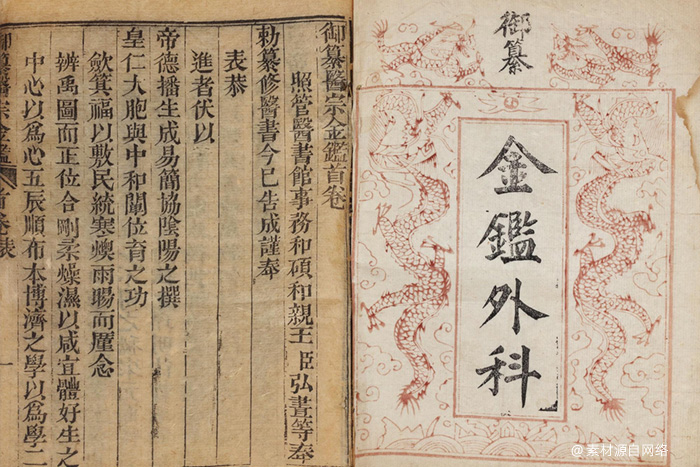 御纂
金鑑外科
御纂醫宗金鑑首卷
照管醫書館事務和碩和親王臣弘晝等奉
勅纂修醫書今已告成謹奉
表恭
進者伏以
帝德播生成易簡協陰陽之撰
皇仁大胞與中和闡位育之功
斂箕福以敷民統寒燠雨暘而廑念
辨禹圖而正位合剛柔燥濕以咸宜體好生之
中心以爲心五辰順布本博濟之學以爲學二
御纂醫宗金鑑 首卷表 一
@素材源自网络